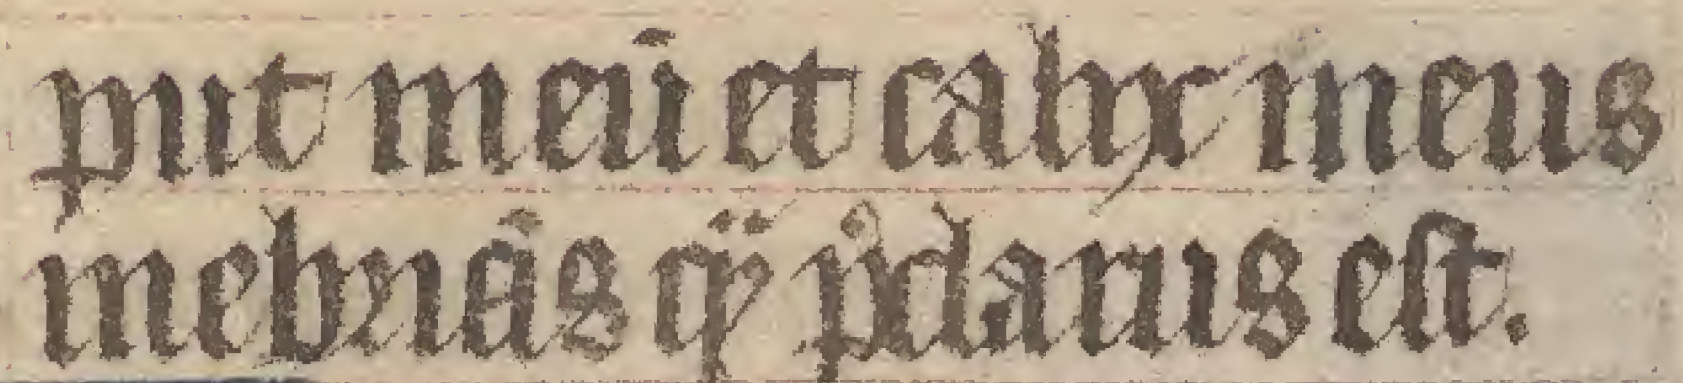 put meū et calix meus
inebriās qᷓ p̄clarus eſt.